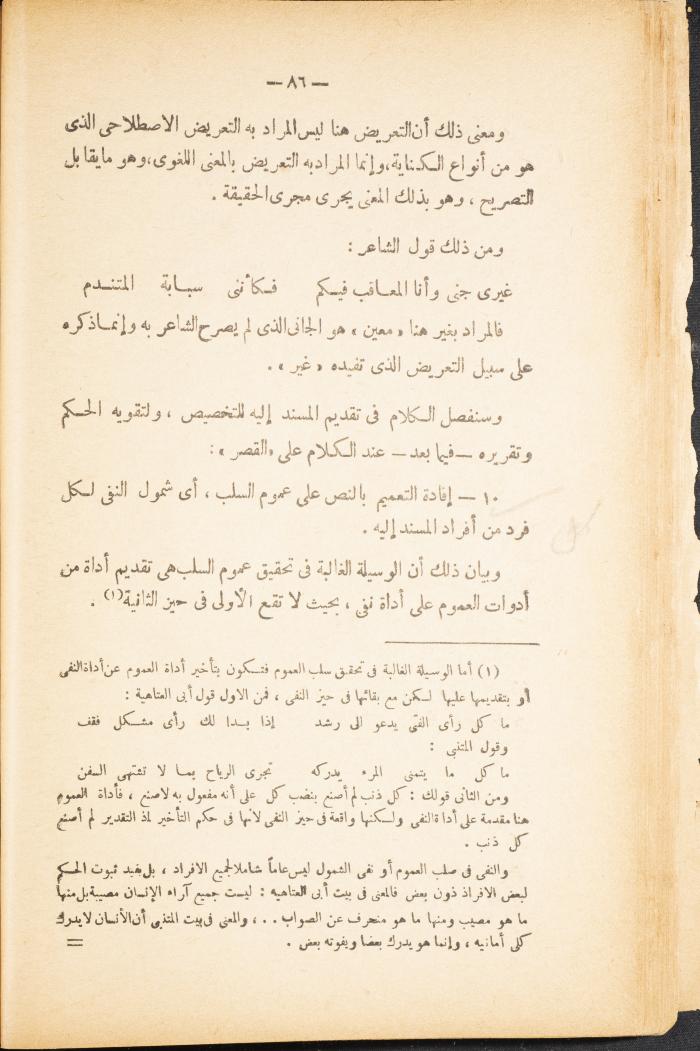 — ٨٦ —
ومعنى ذلك أن التعريض هنا ليس المراد به التعريض الاصطلاحى الذى
هو من أنواع الكناية، وإنما المراد به التعريض بالمعنى اللغوى، وهو ما يقابل
التصريح ، وهو بذلك المعنى يجرى مجرى الحقيقة .
ومن ذلك قول الشاعر :
غيرى جنى وأنا المعاقب فيكم فكأننى سبابة المتندم
فالمراد بغير هنا « معين » هو الجانى الذى لم يصرح الشاعر به وإنما ذكره
على سبيل التعريض الذى تفيده « غير » .
وسنفصل الكلام فى تقديم المسند إليه للتخصيص ، ولتقويه الحكم
وتقريره — فيما بعد — عند الكلام على «القصر» :
١٠ — إفادة التعميم بالنص على عموم السلب ، أى شمول النفى لكل
فرد من أفراد المسند إليه .
وبيان ذلك أن الوسيلة الغالبة فى تحقيق عموم السلب هى تقديم أداة من
أدوات العموم على أداة نفى ، بحيث لا تقع الأولى فى حيز الثانية(١) .
(١) أما الوسيلة الغالبة فى تحقق سلب العموم فتكون بتأخير أداة العموم عن أداة النفى
أو بتقديمها عليها لكن مع بقائها فى حيز النفى ، فمن الاول قول أبى العتاهية :
ما كل رأى الفتى يدعو الى رشد إذا بدا لك رأى مشكل فقف
وقول المتنبى :
ما كل ما يتمنى المرء يدركه تجرى الرياح بما لا تشتهى السفن
ومن الثانى قولك : كل ذنب لم أصنع بنصب كل على أنه مفعول به لاصنع ، فأداة العموم
هنا مقدمة على أداة النفى ولكنها واقعة فى حيز النفى لانها فى حكم التأخير لمذ التقدير لم أصنع
كل ذنب .
والنفى فى صلب العموم أو نفى الشمول ليس عاماً شاملا لجميع الافراد ، بل يفيد ثبوت الحكم
لبعض الافراد ذون بعض فالمعنى فى بيت أبى العتاهيه : ليست جميع آراء الإنسان مصيبة بل منها
ما هو مصيب ومنها ما هو منحرف عن الصواب . . ، والمعنى فى بيت المتنبى أن الأنسان لا يدرك
كل أمانيه ، وإنما هو يدرك بعضا ويفوته بعض .
=